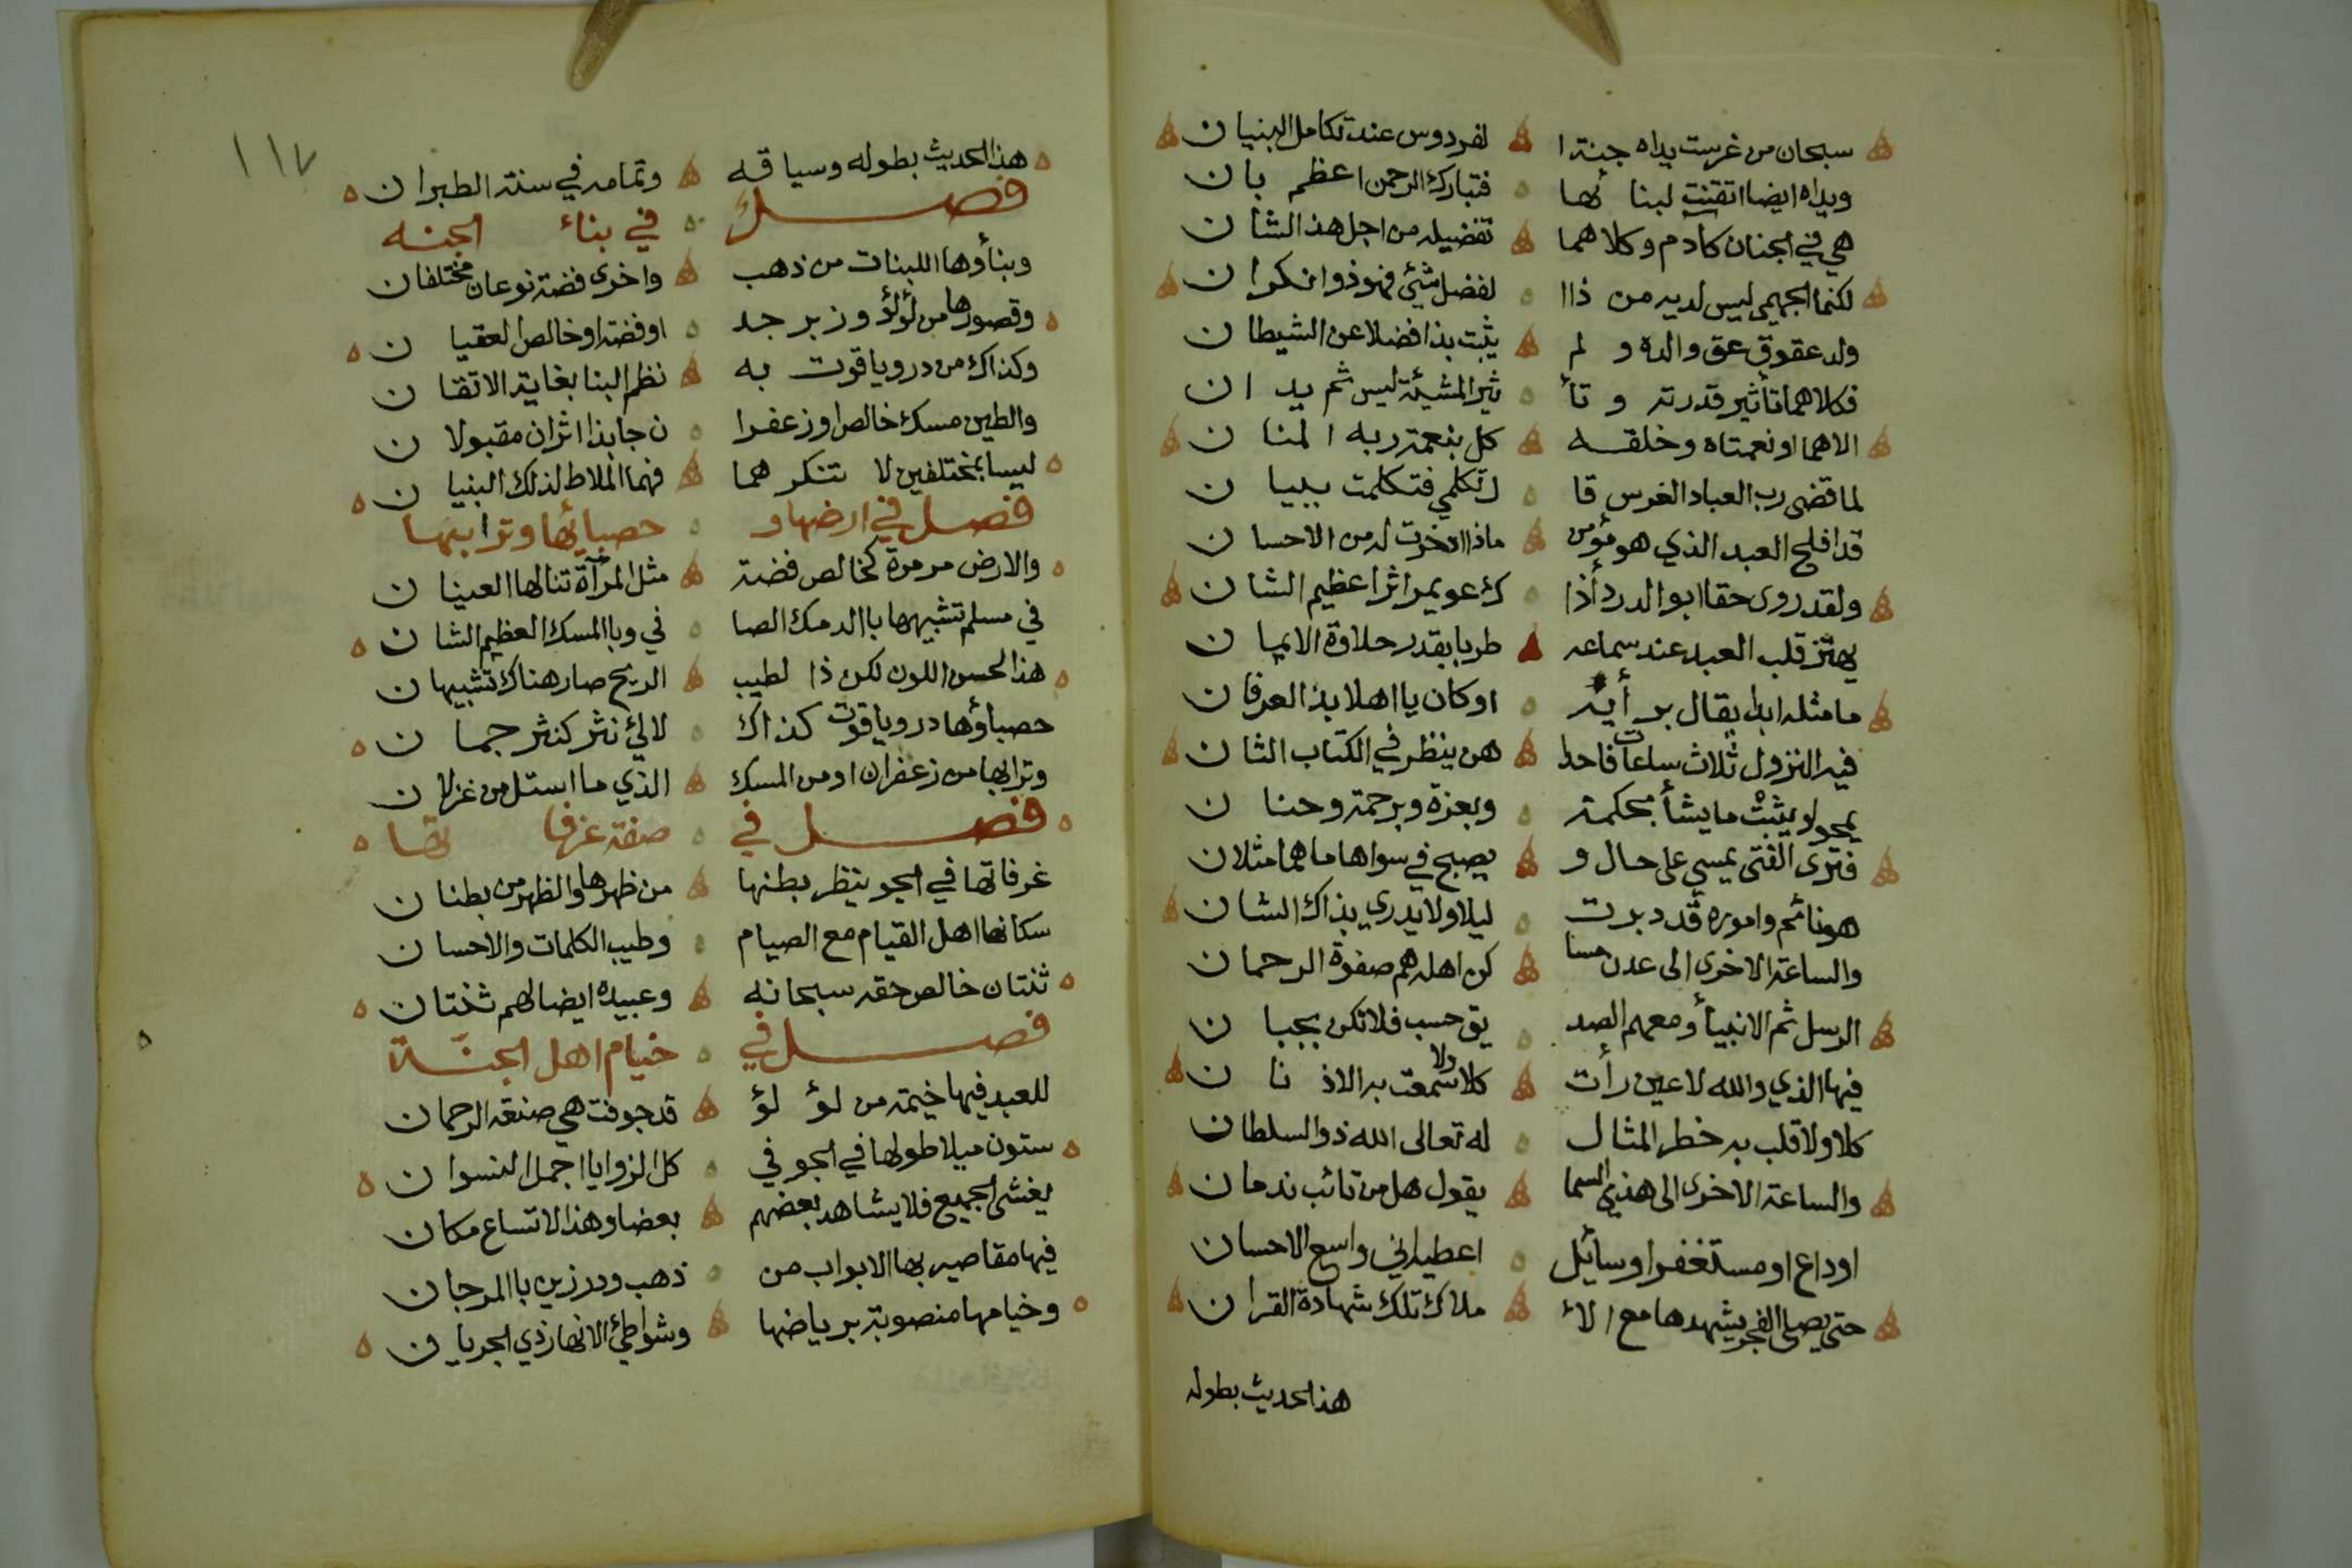 سبحان من غرست يداه جنة ا لفردوس عند تكامل البنيان
ويداه ايضا اتقنت لبنا ئها فتبارك الرحمن اعظم بان
هي في الجنان كادم وكلاهما تفضيله من اجل هذا الشان
لكنما الجهمي ليس لديه من ذاا لفضل شئ فهو ذو انكران
ولد عقوق عق والده و لم يثبت بذا فضلا عن الشيطان
فكلاهما تأثير قدرته و تأ ثير المشيئة ليس ثم يدان
الاهما او نعمتاه وخلقه كل بنعمة ربه المنان
لما قضى رب العباد الغرس قا ل تكلمي فتكلمت ببيان
قد افلح العبد الذي هو مؤمن ماذا ادخرت له من الاحسان
ولقد روى حقا ابو الدرد أذا ك عويمر اثرا عظيم الشان
يهتز قلب العبد عند سماعه طربا بقدر حلاوة الايمان
ما مثله ابدا يقال بر أيه او كان يا اهلا بذا العرفان
فيه النزول ثلاث ساعات فاحدا هن ينظر في الكتاب الثان
يمحو ويثبت ما يشأ بحكمة وبعزة وبرحمة وحنان
فترى الفتى يمسي على حال و يصبح في سواها ما هما مثلان
هو نائم واموره قد دبرت ليلا ولا يدري بذاك الشان
والساعة الاخرى الى عدن مسا كن اهله هم صفوة الرحمان
الرسل ثم الانبيأ ومعهم الصد يق حسب فلا تكن بجبان
فيها الذي والله لا عين رأت كلا ولا سمعت به الاذنان
كلا ولا قلب به خطر المثال له تعالى الله ذو السلطان
والساعة الاخرى الى هذي السما يقول هل من تائب ندمان
او داع او مستغفر او سائل اعطيه اني واسع الاحسان
حتى يصلى الفجر يشهدها مع الا ملاك تلك شهادة القران
هذا الحديث بطوله
١١٧
هذا الحديث بطوله وسياقه وتمامه في سنة الطبران
فصل في بناء الجنه
وبنأوها اللبنات من ذهب واخرى فضة نوعان مختلفان
وقصورها من لؤلؤ وزبرجد او فضة او خالص العقيان
وكذاك من در وياقوت به نظم البنا بغاية الاتقان
والطين مسك خالص او زعفرا ن جا بذا اثران مقبولان
ليسا بمختلفين لا تنكر هما فهما الملاط لذلك البنيان
فصل في ارضها و حصبائها وترابتها
والارض مرمرة كخالص فضة مثل المرآة تنالها العينان
في مسلم تشبيهها باالدمك الصا في وباالمسك العظيم الشان
هذا لحسن اللون لكن ذا لطيب الريح صار هناك تشبيهان
حصباؤها در وياقوت كذاك لالئ نثر كنثر جمان
وترابها من زعفران او من المسك الذي ما استل من غزلان
فصل في صفة غرفا تها
غرفاتها في الجو ينظر بطنها من ظهرها والظهر من بطنان
سكانها اهل القيام مع الصيام وطيب الكلمات والاحسان
ثنتان خالص حقه سبحانه وعبيده ايضا لهم ثنتان
فصل في خيام اهل الجنة
للعبد فيها خيمة من لؤ لؤ قد جوفت هي صنعة الرحمان
ستون ميلا طولها في الجو في كل الزوايا اجمل النسوان
يغشى الجميع فلا يشاهد بعضهم بعضا وهذا لاتساع مكان
فيها مقاصير بها الابواب من ذهب ودر زين باالمرجان
وخيامها منصوبة برياضها وشواطئ الانهار ذي الجريان